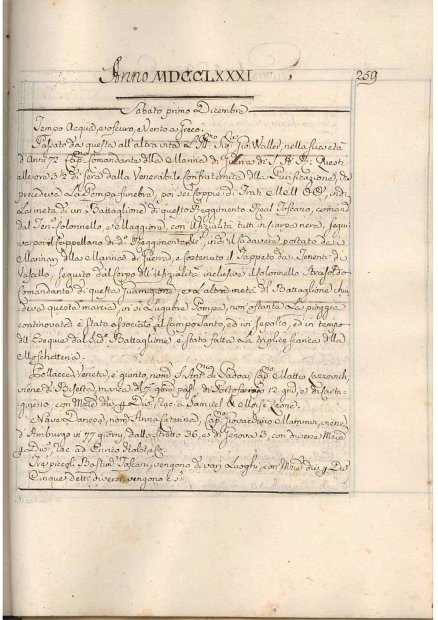 Anno MDCCLXXXI
259
Sabato primo Dicembre
Tempo Acqua, e oscuro, e Vento a Greco.
Passato da questa all'altra vita Sig. Gio. Waller, nella sua età
d'Anni 72 Cap. Comandante della Marina di Guerra di S. A. R. Questi
alle ore 3 1/2 di sera dalla Venerabile Confraternita della Purificazione,
precedeva La Pompa funebre, poi sei coppie di Frati
La metà di un Battaglione di questo Reggimento Real Toscano,
dal Ten. Colonnello e Maggiore, con Ufizialità tutti in
va poi il Cappellano di d. Reggimento indi il Cadavere portato da
Marinari della Marina di Guerra, e sostenuto il Tappeto da Tenenti di
Vascello, seguito dal Corpo dell'Ufizialità inclusive il Colonnello Strasoldo
Comandante di questa Guarnigione, e L'altra metà del Battaglione
deva questa marcia, in sì Lugubre Pompa, non ostante La pioggia
continovata è stato associato al Campo Santo, ed ivi sepolto, ed in tempo
dell'Esequie dal Sud. Battaglione è stata fatta La triplice scarica della
Moschetteria.
Pollacca Veneta, e quinto, nom. S. Ant. di Padoa, Cap. Matteo
viene da Biserta, manca dal 7 giorni pass. di Portofarina 12 gni, e di
con Merc. div. q. Div. rac. a Samuel & Moise Leone.
Nave Danese, nom. Anna Catarina, Cap. Giovacchino Mammin, viene
d'Amburgo in 77 giorni, dallo Stretto 36, e di Genova 3, con diverse Merc.
q. Div. rac. ad Enrico
Tre piccoli Bastim. Toscani, vengono di van Luoghi, con Merc. div. q. Div.
Cinque detti diversi vengono